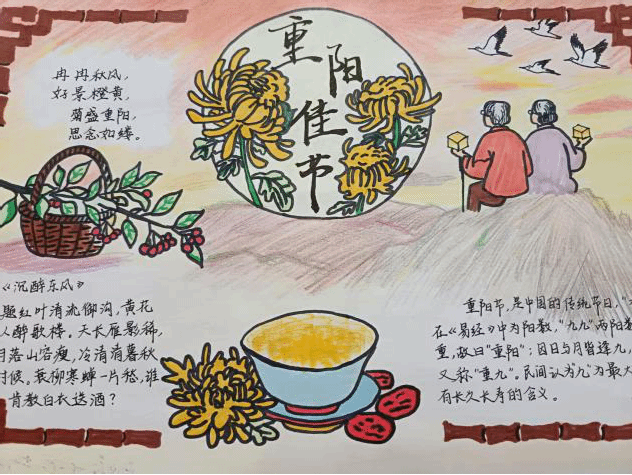 重阳佳节
冉冉秋风,
好景橙黄,
菊盛重阳,
思念如缕。
《沉醉东风》
题红叶清流御沟,黄花
人醉歌楼。天长雁影稀,
月落山容瘦,冷清清暮秋
时候,衰柳寒蝉一片愁,谁
肯教白衣送酒?
重阳节,是中国的传统节日,"
在《易经》中为阳数,"九九"两阳数
重,故曰"重阳";因日与月皆逢九,
又称"重九"。民间认为九为最大
有长久长寿的含义。